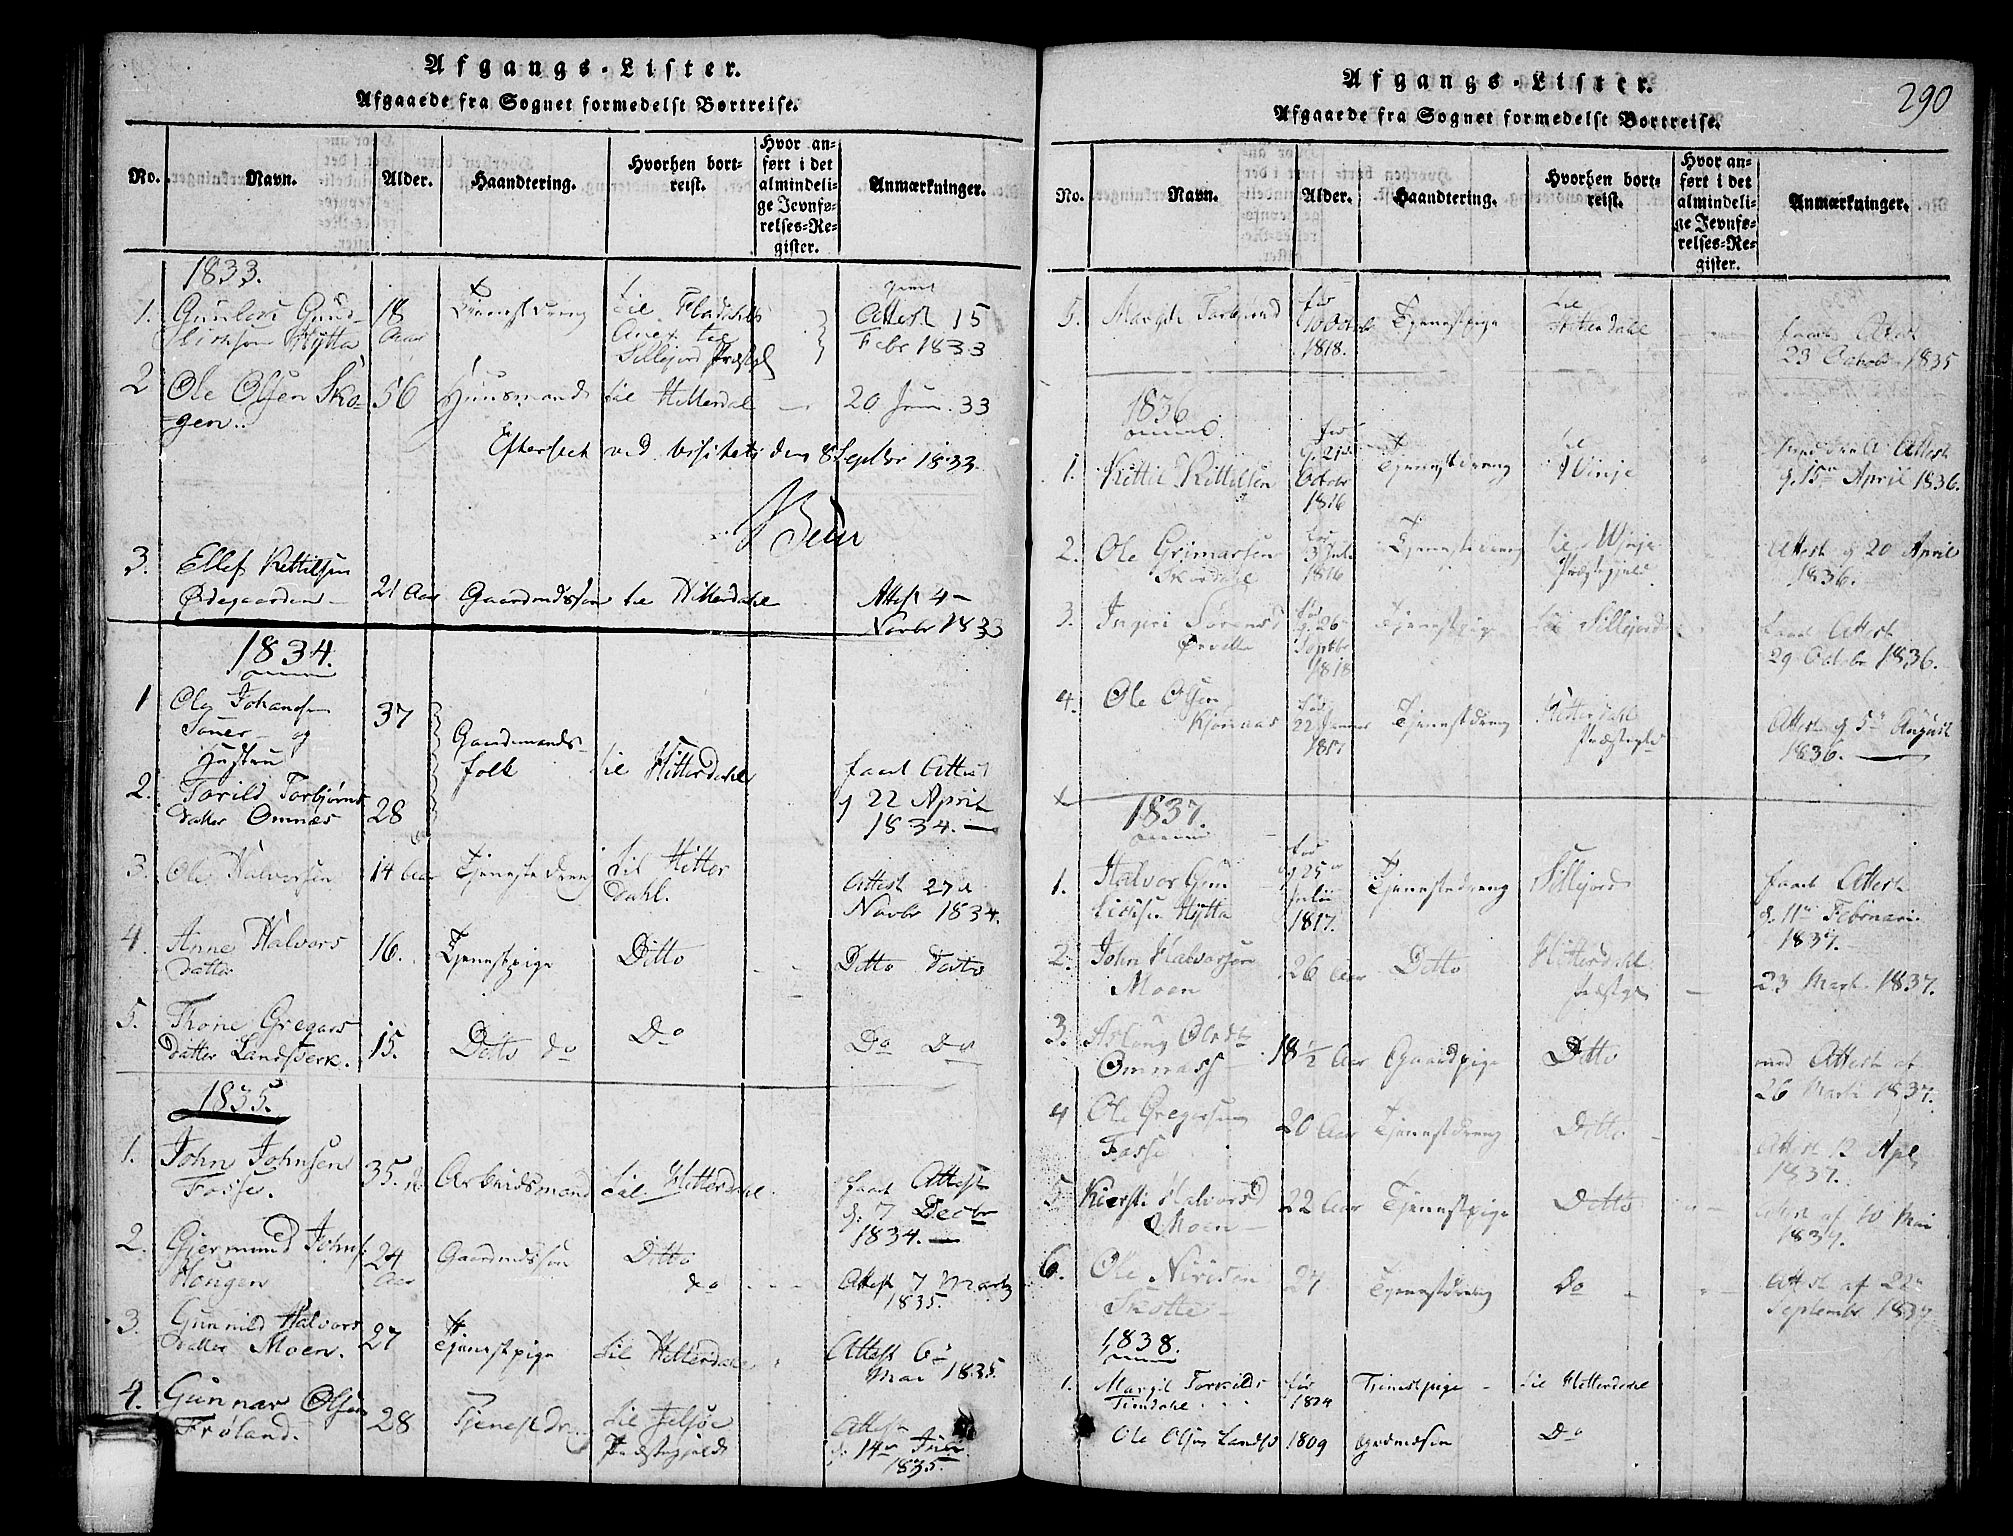 Afgangs-Lister.
Afgaaede fra Sognet formedelst Bortreise.
No.
Navn.
Alder.
Haandtering.
Hvorhen bort-
reist.
Hvor an-
ført i det
almindeli-
ge Jevnfø-
relses-Re-
gister.
Anmærkninger.
1833.
1.
18
Aar
Tienestdreng
til Fladdahls
Anex
Sillejord Præstgl
Attest 15
Febr 1833
2
Ole Olsen Sko-
gen.
56
Huusmand
til Hitterdal
20 Juni 33
Efterseet ved Visitats den 8 Septbr 1833.
3.
Ellef Kettilsen
Ødegaarden
21 Aar
Gaardmdssøn
til Hitterdahl
Attest 4
Novbr 1833
1834.
1
Ole Johansen
og
Hustru
37
Gaardmands-
folk
til Hitterdahl
faaet Attest
d 22 April
1834.
2.
Torild Torbjørns
datter Omnæs
28
3.
Ole Halvorsen
14 Aar
Tjenestedreng
til Hitter
dahl.
Attest 27de
Novbr 1834.
4.
Anne Halvors
datter
16.
Tjenestpige
Ditto
Ditto Dato
5.
Thone Gregars
datter Landsverk.
15.
Ditto do
Do
Do Do
1835.
1.
John Johnsen
Fosse.
35.
Arbeidsmand
til Hitterdahl
faaet Attest
d. 7 Decbr
1834.
2.
Gjermund Johns.
Haugen
24
Aar
Gaardmdssøn
Ditto
do
Attest 7 Marts
1835.
3.
Gunnild Halvors
datter Moen.
27
Tjenestpige
til Hitterdahl
Attest 6
Mai 1835.
4.
Gunnar Olsen
Frøland.
28
Tjenestdreng
til
Præstegjeld
Attest
d 14 Juni
1835.
Afgangs-Lister.
290
Afgaaede fra Sognet formedelst Bortreise.
No.
Navn.
Alder.
Haandtering.
Hvorhen bort-
reist.
Hvor an-
ført i det
almindeli-
ge Jevnfø-
relses-Re-
gister.
Anmærkninger.
5.
Margit Torbjørnsd
før
10 Octob
1818.
Tjenestpige
til
Hitterdahl
faaet Attest
23 October 1835
1836
1.
Kittil Kittilsen
før
d. 21
Octbr
1816
Tjenestdreng
til
Winje
Attest
d. 15 April 1836.
2.
Ole Grimarsen
1816
Tjenestedreng
til Winje
Præstegjeld.
Attest d 20 April
1836.
3.
Ingeri Sørensd
Ørvella
før
d. 26
Septbr
1818
Tjenestpige
til Sillejord
faaet Attest
29 Octbr 1836.
4.
Ole Olsen
Kjornaas
før
22 Januar
1817
Tjenestdreng
Hitterdahl
Præstegld
Attest d 5 August
1836.
1837.
1.
Halvor Gun
Hytta
før
d 25
Julii
1817.
Tjenestedreng
Sillejord
faaet Attest
d. 11 Februari
1837.
2.
John Halvorsøn
Moen
26 Aar
Ditto
Hitterdahl
Præstgl
23 Marts 1837.
3.
Aslaug Olsdt
Omnass
18 1/2 Aar
Gaardpige
Ditto
med Attest af
26 Marts 1837.
4
Ole Gregersen
Fosse
20 Aar
Tjenestdreng
Ditto
Attest 12 Apl,
1837.
5
Kiersti Halvorsd
Moen
22 Aar
Tjenestpige
Ditto
Attest af 10 Mai
1837.
6.
Ole
27
Tjenestdreng
Do
Attest af 22
September 1837
1838.
1.
Margit Torkilds
før
1814
Tienestpige
til Hitterdahl
Ole Olsen Landsv
1809
Grdmdsøn
Do